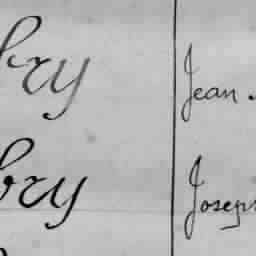 bry Jean
bry Joseph